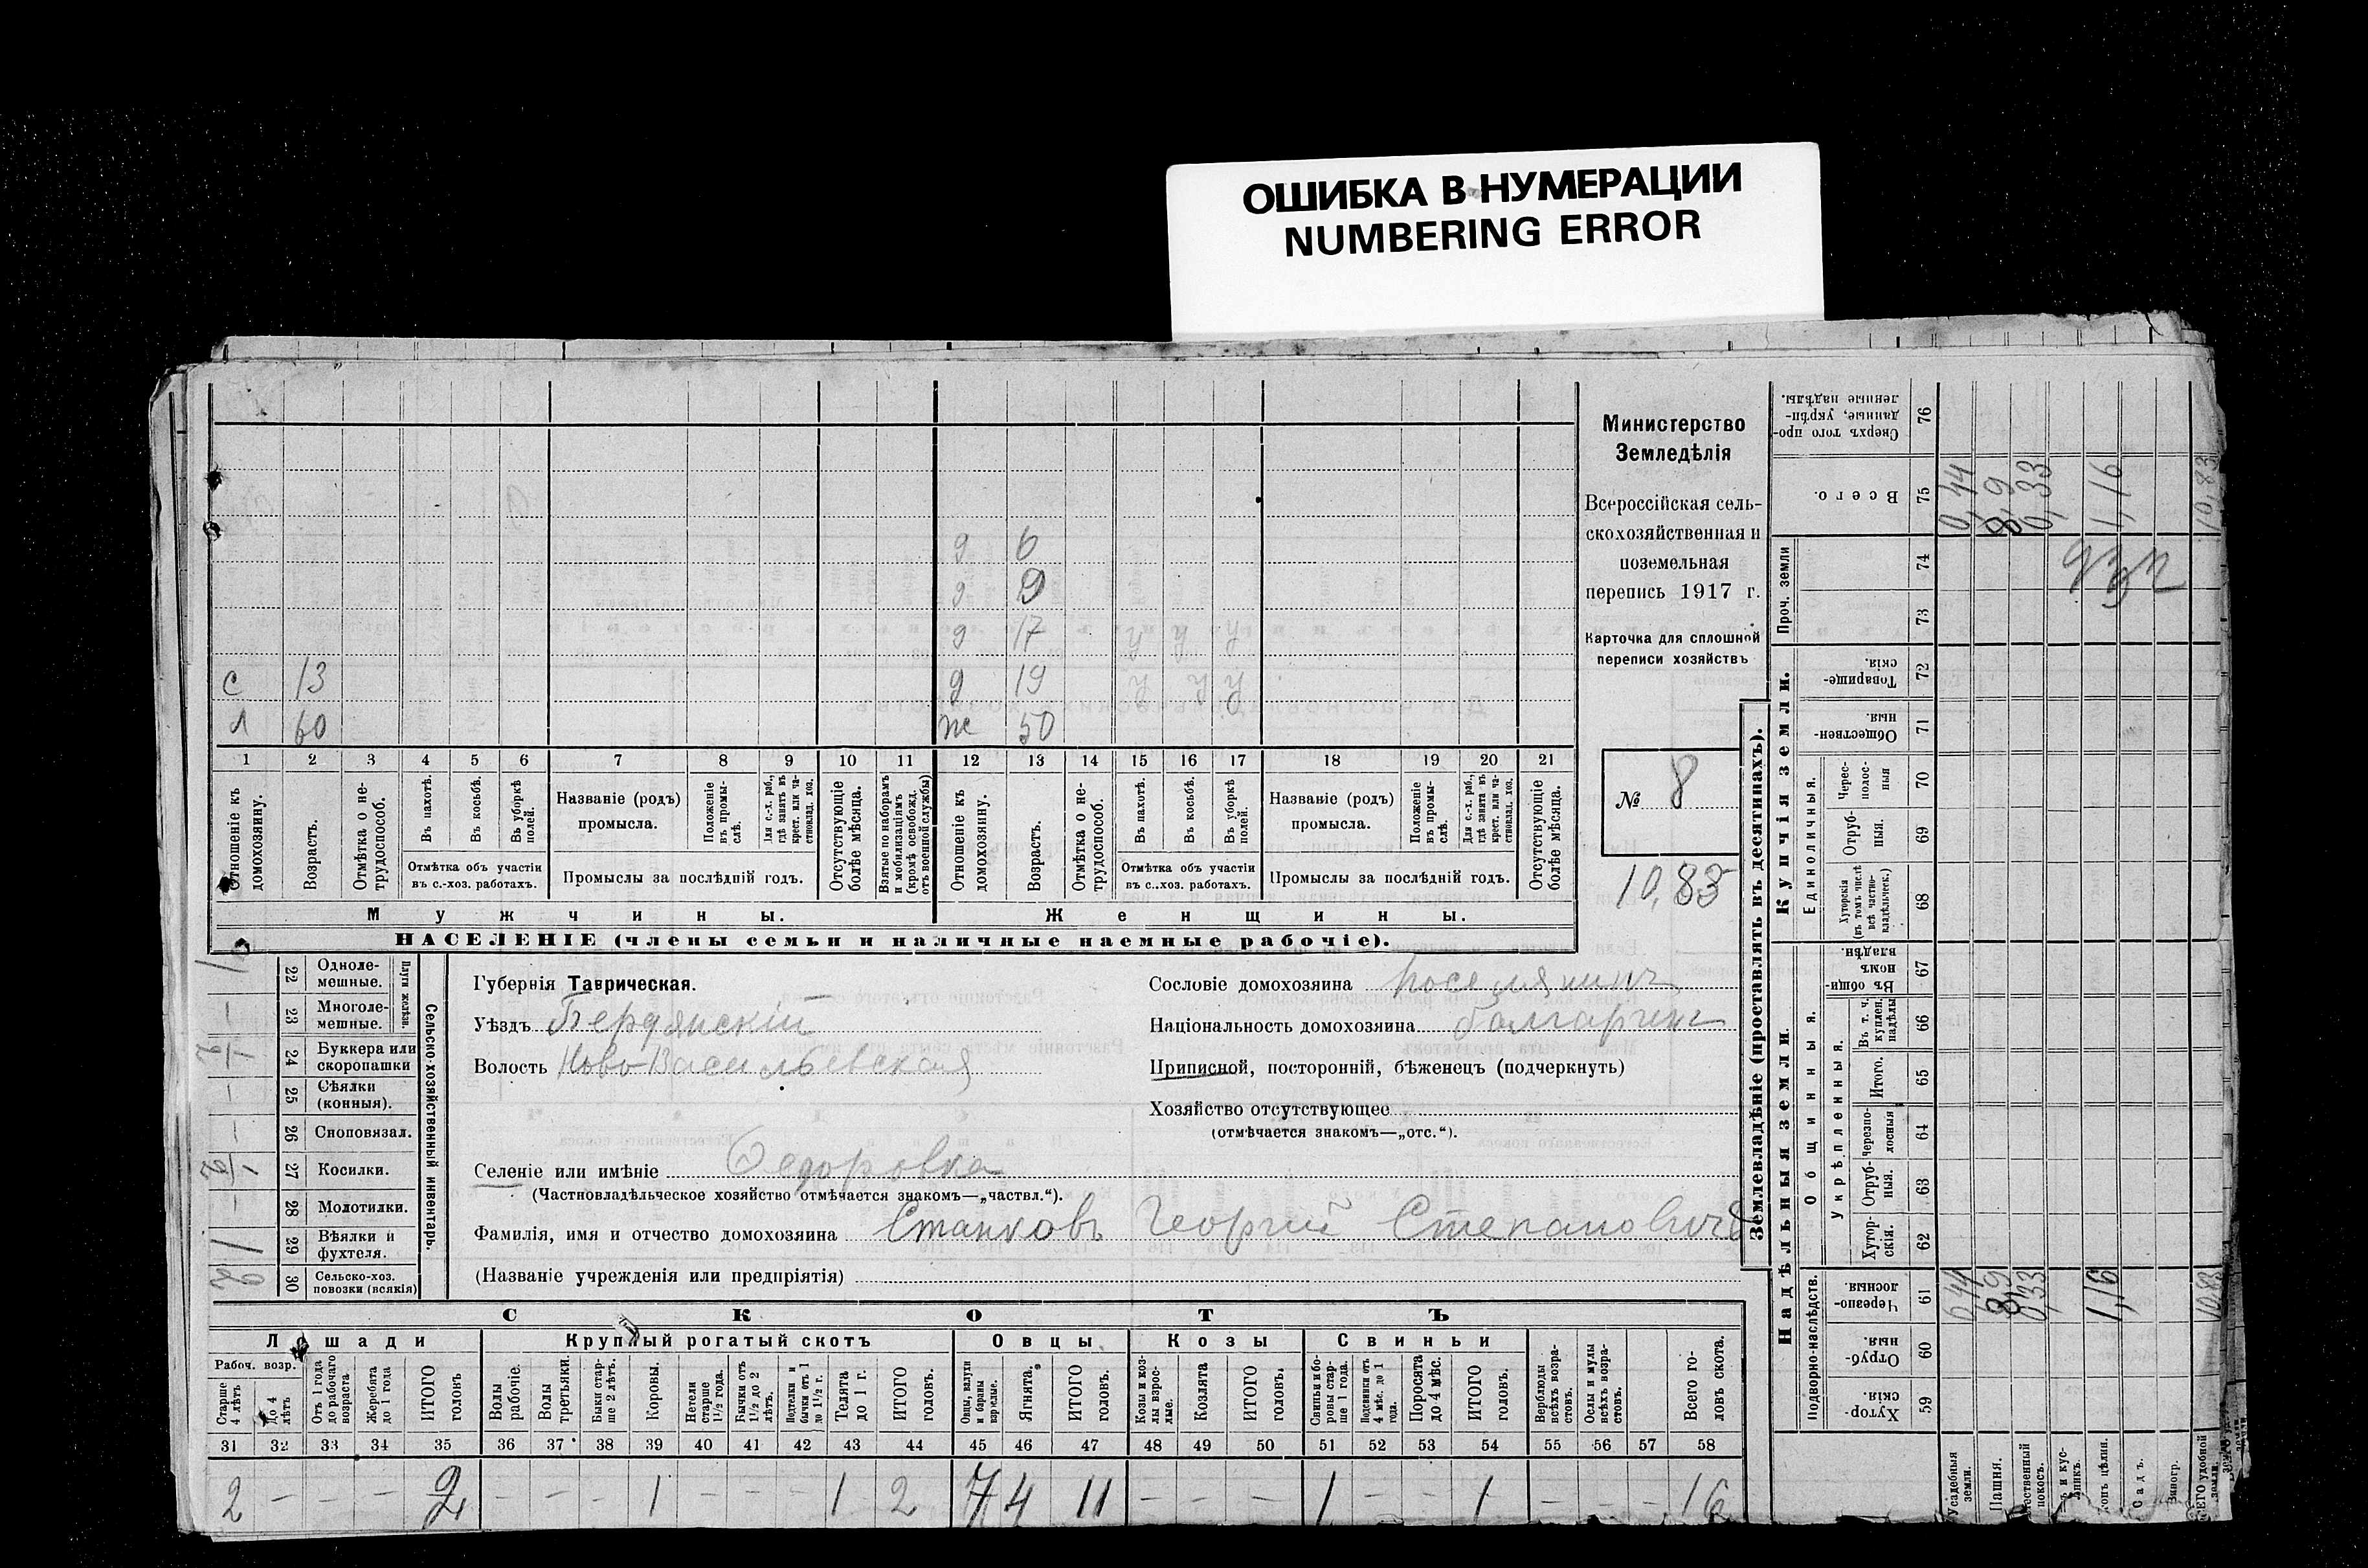 ОШИБКА В НУМЕРАЦИИ
NUMBERING ERROR
д 6
д 9
д 17 у у у
с 13 д 19 у у у
л 60 ж 50
1 2 3 4 5 6 7 8 9 10 11 12 13 14 15 16 17 18 19 20 21
Отношеніе къ домохозяину.
Возрастъ.
Отмѣтка о не-трудоспособ.
Въ пахотѣ.
Въ косьбѣ.
Въ уборкѣ полей.
Отмѣтка объ участіи въ с.-хоз. работахъ.
Названіе (родъ) промысла.
Положеніе въ промы-слѣ.
Для с.-х. раб., гдѣ занятъ въ крест. или ча-стновлад. хоз.
Промыслы за послѣдній годъ.
Отсутствующіе болѣе мѣсяца.
Взятые по наборамъ и мобилизаціямъ (кромѣ освобожд. отъ военной службы)
Отношеніе къ домохозяину.
Возрастъ.
Отмѣтка о не-трудоспособ.
Въ пахотѣ.
Въ косьбѣ.
Въ уборкѣ полей.
Отмѣтка объ участіи въ с.-хоз. работахъ.
Названіе (родъ) промысла.
Положеніе въ промы-слѣ.
Для с.-х. раб., гдѣ занята въ крест. или ча-стновлад. хоз.
Промыслы за послѣдній годъ.
Отсутствующіе болѣе мѣсяца.
Мужчины. Женщины.
НАСЕЛЕНІЕ (члены семьи и наличные наемные рабочіе).
Министерство
Земледѣлія
Всероссійская сель-
скохозяйственная и
поземельная
перепись 1917 г.
Карточка для сплошной
переписи хозяйствъ
№ 8
10,83
Сельско-хозяйственный инвентарь.
Плуги желѣзн.
22 Однолемешные.
23 Многолемешные.
24 Буккера или скоропашки
25 Сѣялки (конныя).
26 Сноповязал.
27 Косилки.
28 Молотилки.
29 Вѣялки и фухтеля.
30 Сельско-хоз. повозки (всякія)
Губернія Таврическая.
Уѣздъ Бердянскій
Волость Ново-Васильевская
Селеніе или имѣніе Ѳедоровка
(Частновладѣльческое хозяйство отмѣчается знакомъ—„частвл.“).
Фамилія, имя и отчество домохозяина Станковъ Георгій Степановичъ
(Названіе учрежденія или предпріятія)
Сословіе домохозяина поселянинъ
Національность домохозяина болгаринъ
Приписной, посторонній, бѣженецъ (подчеркнуть)
Хозяйство отсутствующее
(отмѣчается знакомъ—„отс.“).
СКОТЪ
Лошади Крупный рогатый скотъ Овцы Козы Свиньи
Рабоч. возр.
Старше 4 лѣтъ
До 4 лѣтъ
Отъ 1 года до рабочаго возраста
Жеребята до 1 года
ИТОГО головъ
Волы рабочіе.
Волы третьяки.
Быки стар-ше 2 лѣтъ.
Коровы.
Нетели старше 1½ года.
Бычки отъ 1½ до 2 лѣтъ.
Подтелки и бычки отъ 1 до 1½ г.
Телята до 1 г.
ИТОГО головъ.
Овцы, валухи и бараны взрослые.
Ягнята.
ИТОГО головъ.
Козы и коз-лы взрос-лые.
Козлята
ИТОГО головъ.
Свиньи и бо-ровы стар-ше 1 года.
Подсвинки отъ 4 мѣс. до 1 года.
Поросята до 4 мѣс.
ИТОГО головъ.
Верблюды всѣхъ возра-стовъ.
Ослы и мулы всѣхъ возра-стовъ.
Всего го-ловъ скота.
31 32 33 34 35 36 37 38 39 40 41 42 43 44 45 46 47 48 49 50 51 52 53 54 55 56 57 58
2 – – – 2 – – – 1 – – – 1 2 7 4 11 – – – 1 – – 1 – – – 16
Землевладѣніе (проставлять въ десятинахъ).
Купчія земли.
Надѣльныя земли.
Сверхъ того про-данные, укрѣп-ленные надѣлы. 76
Всего. 75
Проч. земли 74 73
Товарище-скія. 72
Обществен-ныя. 71
Единоличныя.
Черес-полос-ныя 70
Отруб-ныя. 69
Хуторскія (въ томъ числѣ всѣ частно-владѣльческ.) 68
Общинныя.
Въ общин-номъ владѣн. 67
Укрѣпленныя.
Въ т. ч. куплен. надѣлы 66
Итого. 65
Черезпо-лосныя 64
Отруб-ныя. 63
Хутор-скія. 62
Подворно-наслѣдств.
Черезпо-лосныя. 61
Отруб-ныя. 60
Хутор-скія 59
0,44 8,9 0,33 1,16 10,83
0,44 8,9 0,33 1,16 10,83
Усадебныя земли.
Пашня.
покосъ.
Садъ.
Виногр.